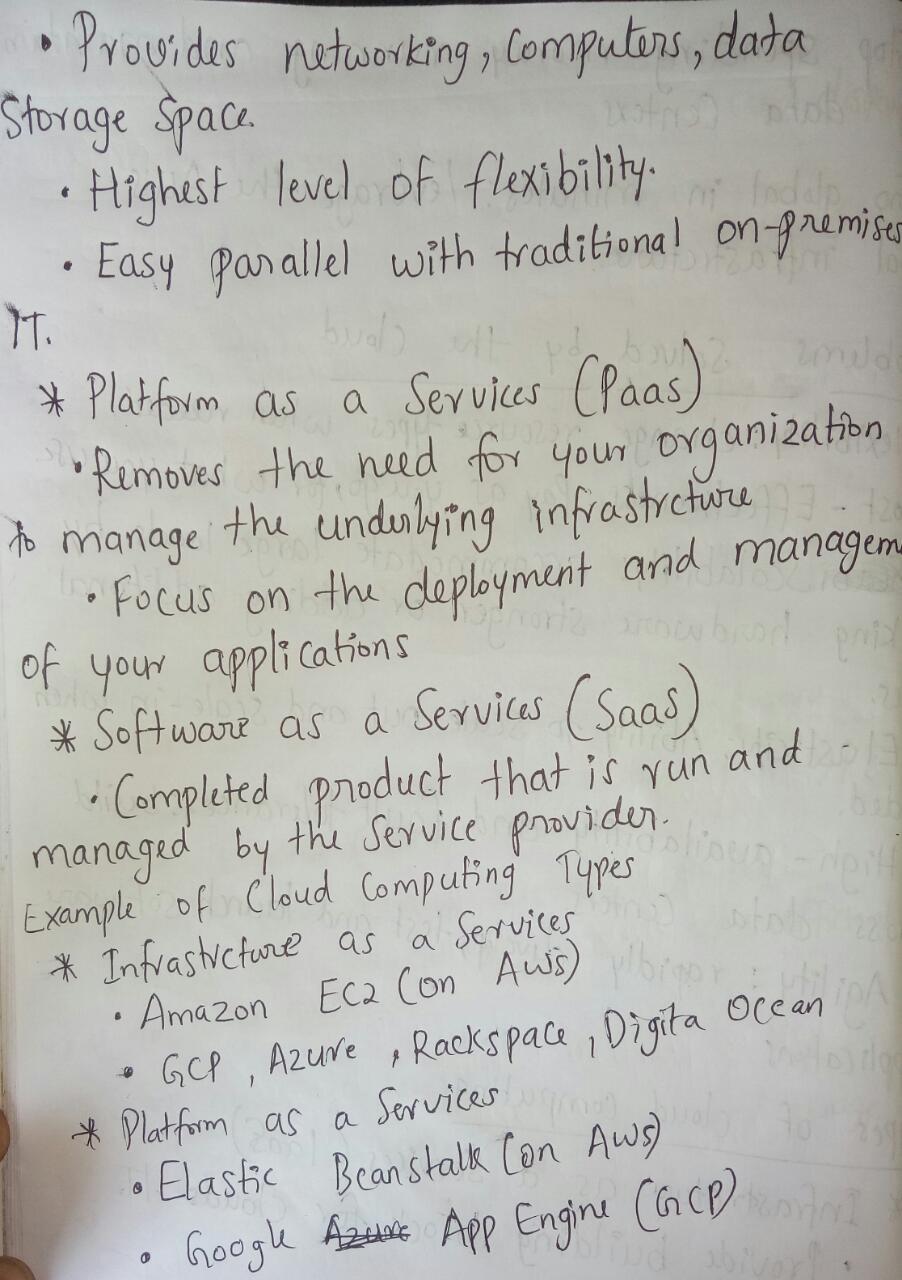 • Provides networking, Computers, data
Storage Space.
• Highest level of flexibility.
• Easy parallel with traditional on-premises
IT.
* Platform as a Services (Paas)
• Removes the need for your organization
to manage the underlying infrastrcture
• Focus on the deployment and managem
of your applications
* Software as a Services (Saas)
• Completed product that is run and
managed by the Service provider.
Example of Cloud Computing Types
* Infrastrcture as a Services
• Amazon EC2 (on AWS)
• GCP, Azure, Rackspace, Digita Ocean
* Platform as a Services
• Elastic Beanstalk (on AWS)
• Google Azure App Engine (GCP)